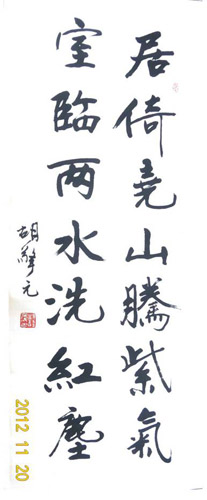 居倚尧山腾紫氣
室臨两水洗紅塵
胡擎元
2012 11 20